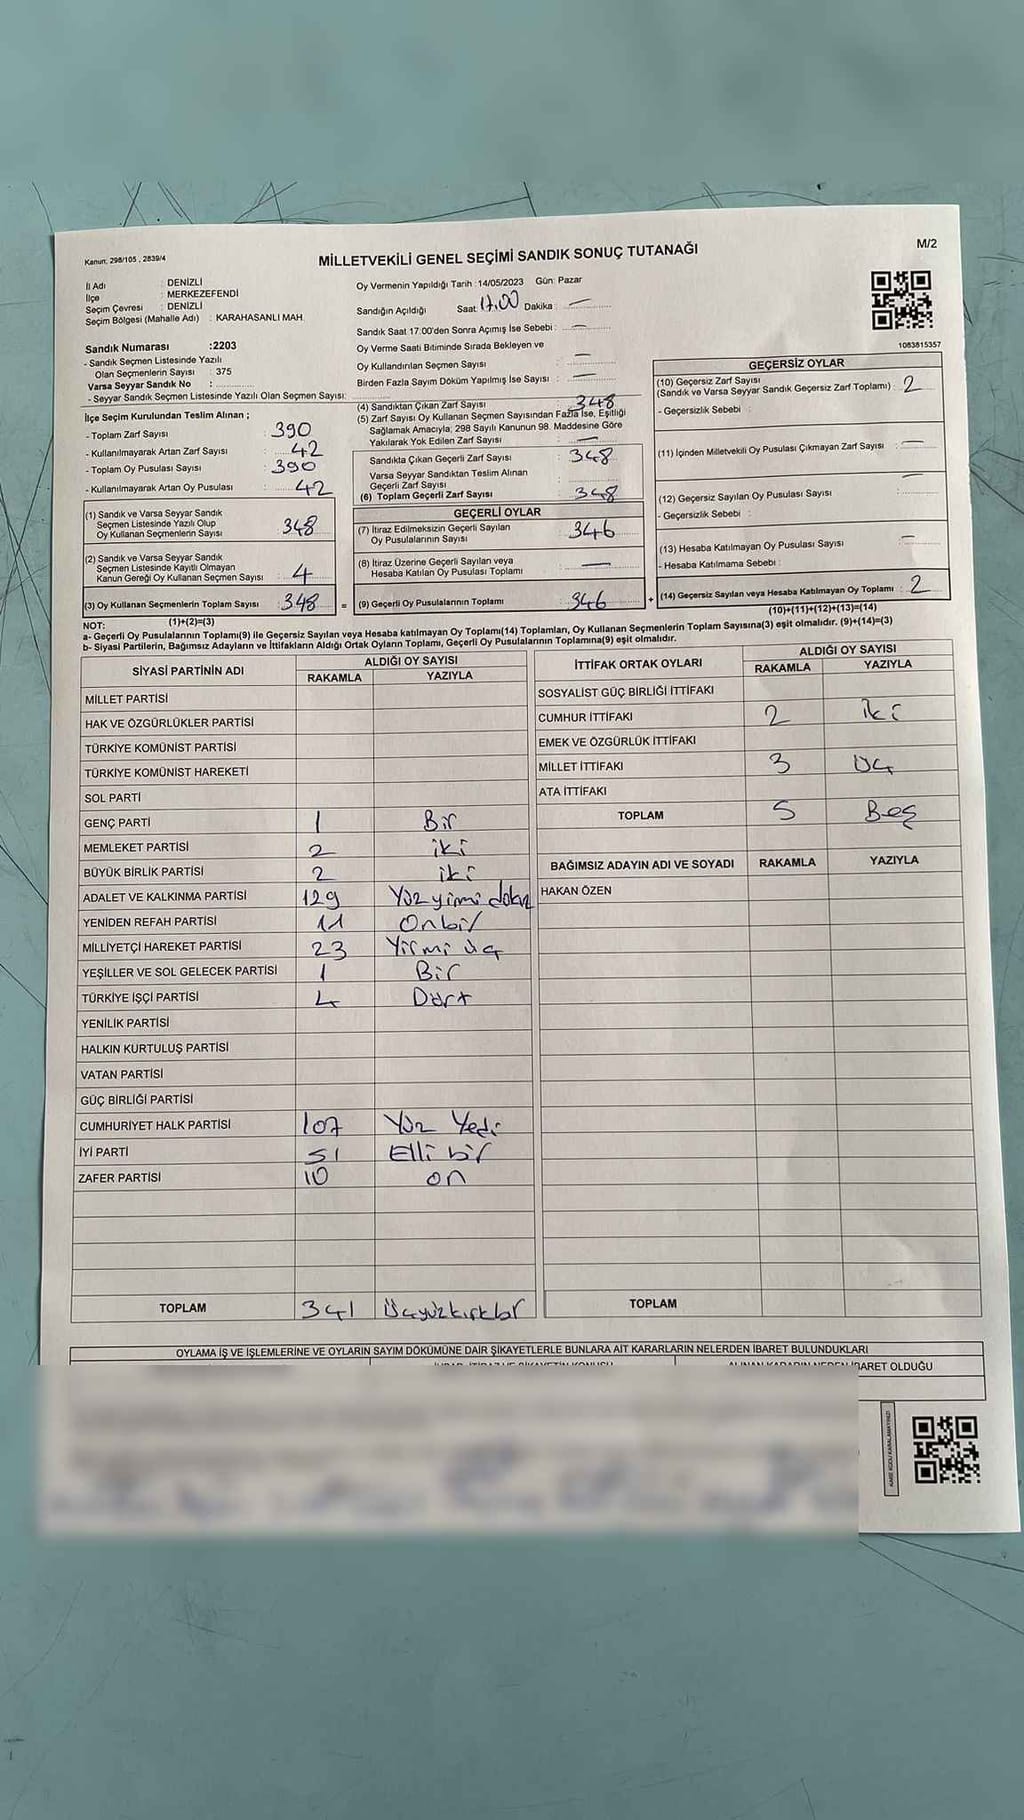 Kanun: 298/105 , 2839/4
MİLLETVEKİLİ GENEL SEÇİMİ SANDIK SONUÇ TUTANAĞI
M/2
İl Adı : DENİZLİ
İlçe : MERKEZEFENDİ
Seçim Çevresi : DENİZLİ
Seçim Bölgesi (Mahalle Adı) : KARAHASANLI MAH.
Sandık Numarası :2203
- Sandık Seçmen Listesinde Yazılı
Olan Seçmenlerin Sayısı : 375
Varsa Seyyar Sandık No :
- Seyyar Sandık Seçmen Listesinde Yazılı Olan Seçmen Sayısı:
Oy Vermenin Yapıldığı Tarih : 14/05/2023 Gün: Pazar
Sandığın Açıldığı Saat 17.00 Dakika : —
Sandık Saat 17:00'den Sonra Açımış İse Sebebi : —
Oy Verme Saati Bitiminde Sırada Bekleyen ve
Oy Kullandırılan Seçmen Sayısı : —
Birden Fazla Sayım Döküm Yapılmış İse Sayısı : —
1083815357
İlçe Seçim Kurulundan Teslim Alınan ;
- Toplam Zarf Sayısı : 390
- Kullanılmayarak Artan Zarf Sayısı : 42
- Toplam Oy Pusulası Sayısı : 390
- Kullanılmayarak Artan Oy Pusulası : 42
(1) Sandık ve Varsa Seyyar Sandık
Seçmen Listesinde Yazılı Olup
Oy Kullanan Seçmenlerin Sayısı : 348
(2) Sandık ve Varsa Seyyar Sandık
Seçmen Listesinde Kayıtlı Olmayan
Kanun Gereği Oy Kullanan Seçmen Sayısı : 4
(3) Oy Kullanan Seçmenlerin Toplam Sayısı : 348
(1)+(2)=(3)
(4) Sandıktan Çıkan Zarf Sayısı : 348
(5) Zarf Sayısı Oy Kullanan Seçmen Sayısından Fazla İse, Eşitliği
Sağlamak Amacıyla, 298 Sayılı Kanunun 98. Maddesine Göre
Yakılarak Yok Edilen Zarf Sayısı : —
Sandıkta Çıkan Geçerli Zarf Sayısı : 348
Varsa Seyyar Sandıktan Teslim Alınan
Geçerli Zarf Sayısı :
(6) Toplam Geçerli Zarf Sayısı : 348
GEÇERLİ OYLAR
(7) İtiraz Edilmeksizin Geçerli Sayılan
Oy Pusulalarının Sayısı : 346
(8) İtiraz Üzerine Geçerli Sayılan veya
Hesaba Katılan Oy Pusulası Toplamı : —
= (9) Geçerli Oy Pusulalarının Toplamı : 346
GEÇERSİZ OYLAR
(10) Geçersiz Zarf Sayısı
(Sandık ve Varsa Seyyar Sandık Geçersiz Zarf Toplamı) : 2
- Geçersizlik Sebebi :
(11) İçinden Milletvekili Oy Pusulası Çıkmayan Zarf Sayısı : —
(12) Geçersiz Sayılan Oy Pusulası Sayısı : —
- Geçersizlik Sebebi :
(13) Hesaba Katılmayan Oy Pusulası Sayısı : —
- Hesaba Katılmama Sebebi :
+ (14) Geçersiz Sayılan veya Hesaba Katılmayan Oy Toplamı : 2
(10)+(11)+(12)+(13)=(14)
NOT:
a- Geçerli Oy Pusulalarının Toplamı(9) ile Geçersiz Sayılan veya Hesaba katılmayan Oy Toplamı(14) Toplamları, Oy Kullanan Seçmenlerin Toplam Sayısına(3) eşit olmalıdır. (9)+(14)=(3)
b- Siyasi Partilerin, Bağımsız Adayların ve İttifakların Aldığı Ortak Oyların Toplamı, Geçerli Oy Pusulalarının Toplamına(9) eşit olmalıdır.
SİYASİ PARTİNİN ADI ALDIĞI OY SAYISI
RAKAMLA YAZIYLA
MİLLET PARTİSİ
HAK VE ÖZGÜRLÜKLER PARTİSİ
TÜRKİYE KOMÜNİST PARTİSİ
TÜRKİYE KOMÜNİST HAREKETİ
SOL PARTİ
GENÇ PARTİ 1 Bir
MEMLEKET PARTİSİ 2 iki
BÜYÜK BİRLİK PARTİSİ 2 iki
ADALET VE KALKINMA PARTİSİ 129 Yüz yirmi dokuz
YENİDEN REFAH PARTİSİ 11 Onbir
MİLLİYETÇİ HAREKET PARTİSİ 23 Yirmi üç
YEŞİLLER VE SOL GELECEK PARTİSİ 1 Bir
TÜRKİYE İŞÇİ PARTİSİ 4 Dört
YENİLİK PARTİSİ
HALKIN KURTULUŞ PARTİSİ
VATAN PARTİSİ
GÜÇ BİRLİĞİ PARTİSİ
CUMHURİYET HALK PARTİSİ 107 Yüz Yedi
İYİ PARTİ 51 Elli bir
ZAFER PARTİSİ 10 on
TOPLAM 341 Üçyüzkırkbir
İTTİFAK ORTAK OYLARI ALDIĞI OY SAYISI
RAKAMLA YAZIYLA
SOSYALİST GÜÇ BİRLİĞİ İTTİFAKI
CUMHUR İTTİFAKI 2 iki
EMEK VE ÖZGÜRLÜK İTTİFAKI
MİLLET İTTİFAKI 3 üç
ATA İTTİFAKI
TOPLAM 5 Beş
BAĞIMSIZ ADAYIN ADI VE SOYADI RAKAMLA YAZIYLA
HAKAN ÖZEN
TOPLAM
OYLAMA İŞ VE İŞLEMLERİNE VE OYLARIN SAYIM DÖKÜMÜNE DAİR ŞİKAYETLERLE BUNLARA AİT KARARLARIN NELERDEN İBARET BULUNDUKLARI
ALINAN KARARIN NEDEN İBARET OLDUĞU